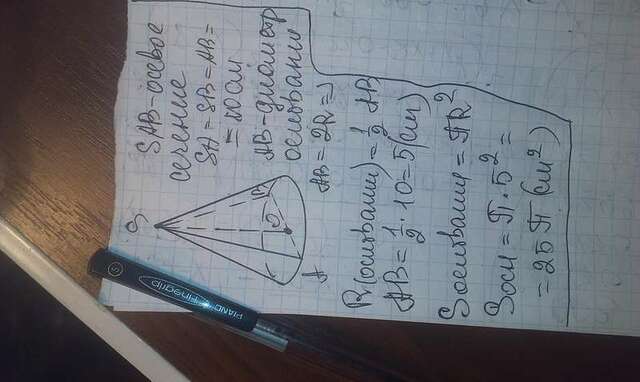 SAB-осевое
сечение
SA = SB = AB =
= 10 см
AB-диаметр
основания
AB = 2R =>
S
B
O
A
R(основания) = 1/2 AB
AB = 1/2 · 10 = 5 (см)
Sоснования = πR²
Sосн = π · 5² =
= 25 π (см²)
PIANO Finegrip